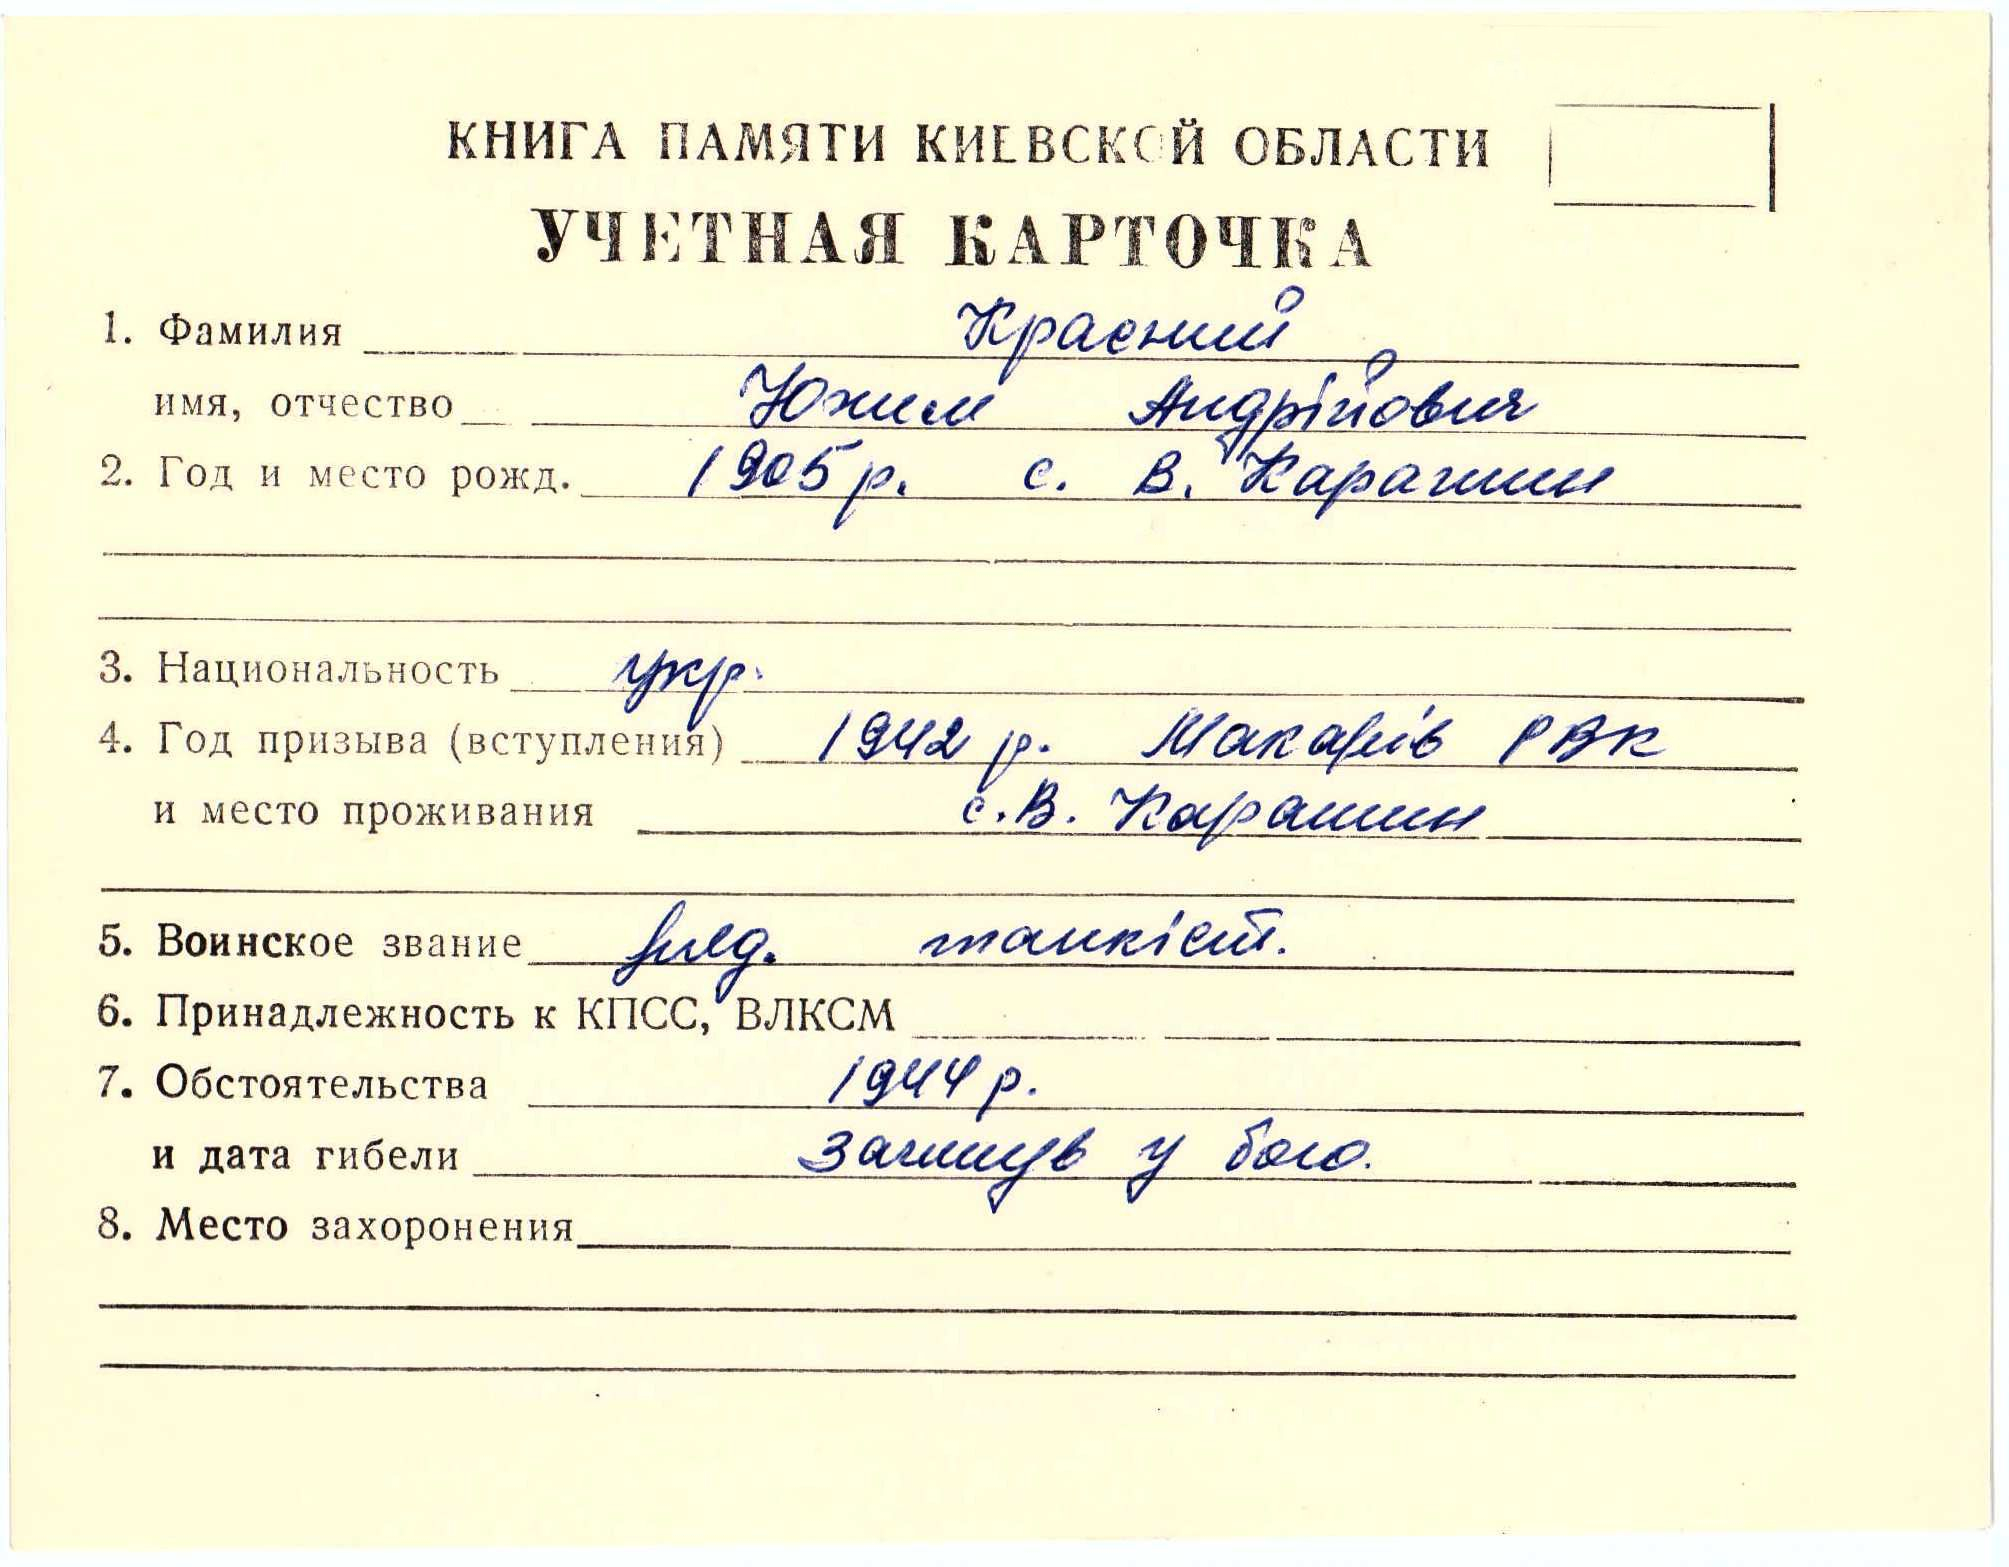 КНИГА ПАМЯТИ КИЕВСКОЙ ОБЛАСТИ
УЧЕТНАЯ КАРТОЧКА
1. Фамилия Красний
имя, отчество Юхим Андрійович
2. Год и место рожд. 1905 р. с. В. Карашин
3. Национальность укр.
4. Год призыва (вступления) 1942 р. Макарів РВК
и место проживания с. В. Карашин
5. Воинское звание танкіст.
6. Принадлежность к КПСС, ВЛКСМ
7. Обстоятельства 1944 р.
и дата гибели Загинув у бою.
8. Место захоронения